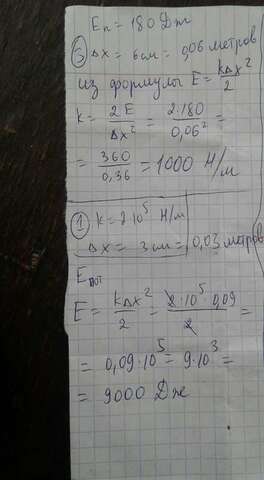 Eп = 180 Дж
③ Δx = 6 см = 0,06 метров
из формулы E = kΔx²/2
k = 2E/Δx² = 2·180/0,06² =
= 360/0,36 = 1000 Н/м
① k = 2·10⁵ Н/м
Δx = 3 см = 0,03 метров
Eпот
E = kΔx²/2 = 2·10⁵·0,09/2 =
= 0,09·10⁵ = 9·10³ =
= 9000 Дж